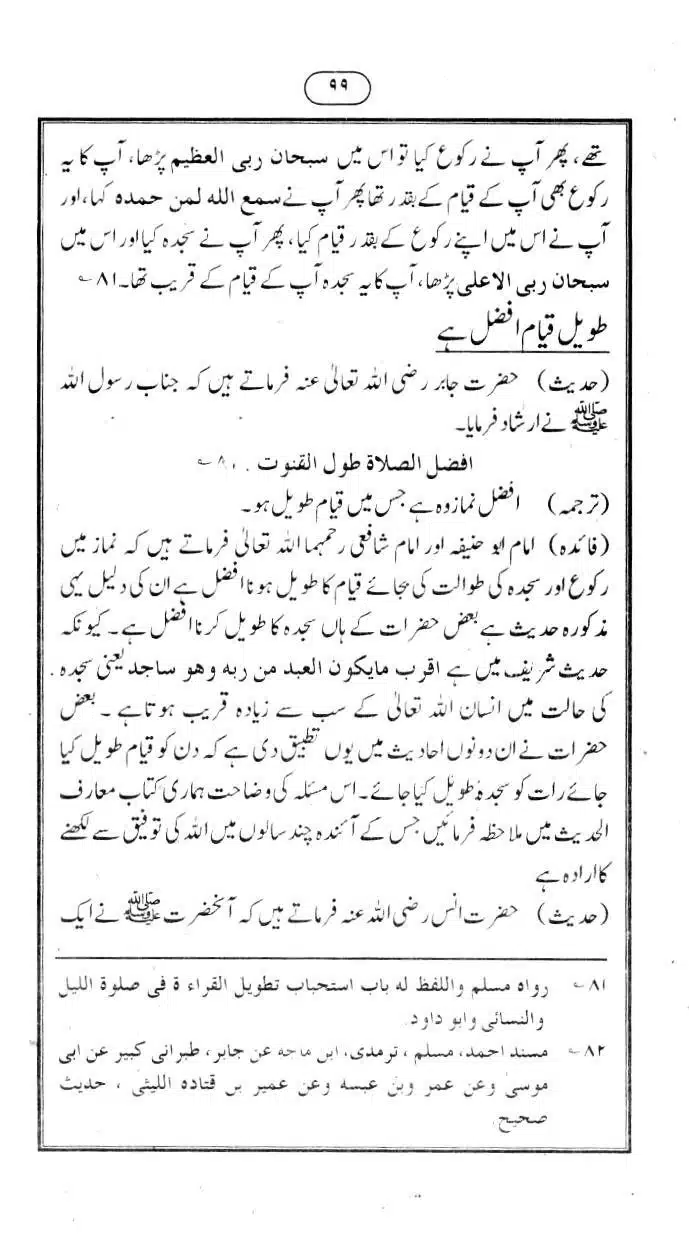 ۹۹
تھے، پھر آپ نے رکوع کیا تو اس میں سبحان ربی العظیم پڑھا، آپ کا یہ
رکوع بھی آپ کے قیام کے بقدر تھا پھر آپ نے سمع الله لمن حمده کہا، اور
آپ نے اس میں اپنے رکوع کے بقدر قیام کیا، پھر آپ نے سجدہ کیا اور اس میں
سبحان ربی الاعلی پڑھا، آپ کا یہ سجدہ آپ کے قیام کے قریب تھا۔ ۸۱؎
طویل قیام افضل ہے
(حدیث) حضرت جابر رضی اللہ تعالیٰ عنہ فرماتے ہیں کہ جناب رسول اللہ
ﷺ نے ارشاد فرمایا۔
افضل الصلاة طول القنوت ۔
(ترجمہ) افضل نماز وہ ہے جس میں قیام طویل ہو۔
(فائدہ) امام ابو حنیفہ اور امام شافعی رحمہما اللہ تعالیٰ فرماتے ہیں کہ نماز میں
رکوع اور سجدہ کی طوالت کی بجائے قیام کا طویل ہونا افضل ہے ان کی دلیل یہی
مذکورہ حدیث ہے بعض حضرات کے ہاں سجدہ کا طویل کرنا افضل ہے۔ کیونکہ
حدیث شریف میں ہے اقرب مایکون العبد من ربه وهو ساجد یعنی سجدہ
کی حالت میں انسان اللہ تعالیٰ کے سب سے زیادہ قریب ہوتا ہے ۔ بعض
حضرات نے ان دونوں احادیث میں یوں تطبیق دی ہے کہ دن کو قیام طویل کیا
جائے رات کو سجدہ طویل کیا جائے۔ اس مسئلہ کی وضاحت ہماری کتاب معارف
الحدیث میں ملاحظہ فرمائیں جس کے آئندہ چند سالوں میں اللہ کی توفیق سے لکھنے
کا ارادہ ہے
(حدیث) حضرت انس رضی اللہ عنہ فرماتے ہیں کہ آنحضرت ﷺ نے ایک
۸۱؎ رواه مسلم واللفظ له باب استحباب تطویل القراء ة فی صلوة اللیل
والنسائی وابو داود.
۸۲؎ مسند احمد، مسلم ، ترمدی، ابن ماجه عن جابر، طبرانی کبیر عن ابی
موسیٰ وعن عمر وبن عبسه وعن عمیر بن قتاده اللیثی ، حدیث
صحیح.